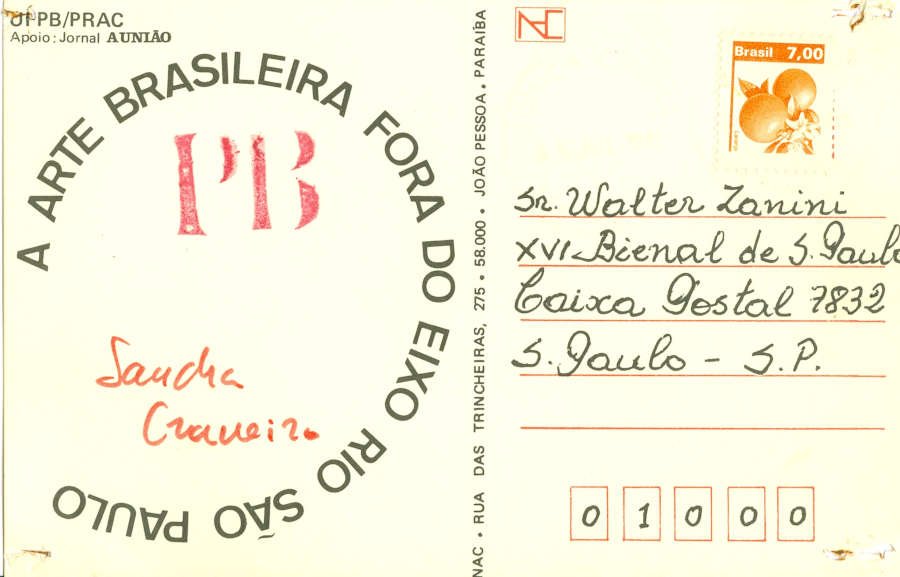 UFPB/PRAC
Apoio: Jornal A UNIÃO
A ARTE BRASILEIRA FORA DO EIXO RIO SÃO PAULO
PB
Sandra
Craneiro
NAC • RUA DAS TRINCHEIRAS, 275 • 58.000 • JOÃO PESSOA • PARAÍBA
NAC
Brasil 7,00
Laranja
Sr. Walter Zanini
XVI Bienal de S. Paulo
Caixa Postal 7832
S. Paulo - S.P.
0 1 0 0 0